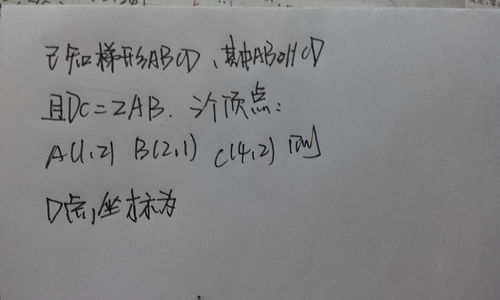 已知梯形ABCD,其中AB∥CD
且DC=2AB.三个顶点:
A(1,2) B(2,1) C(4,2) 则
D点,坐标为